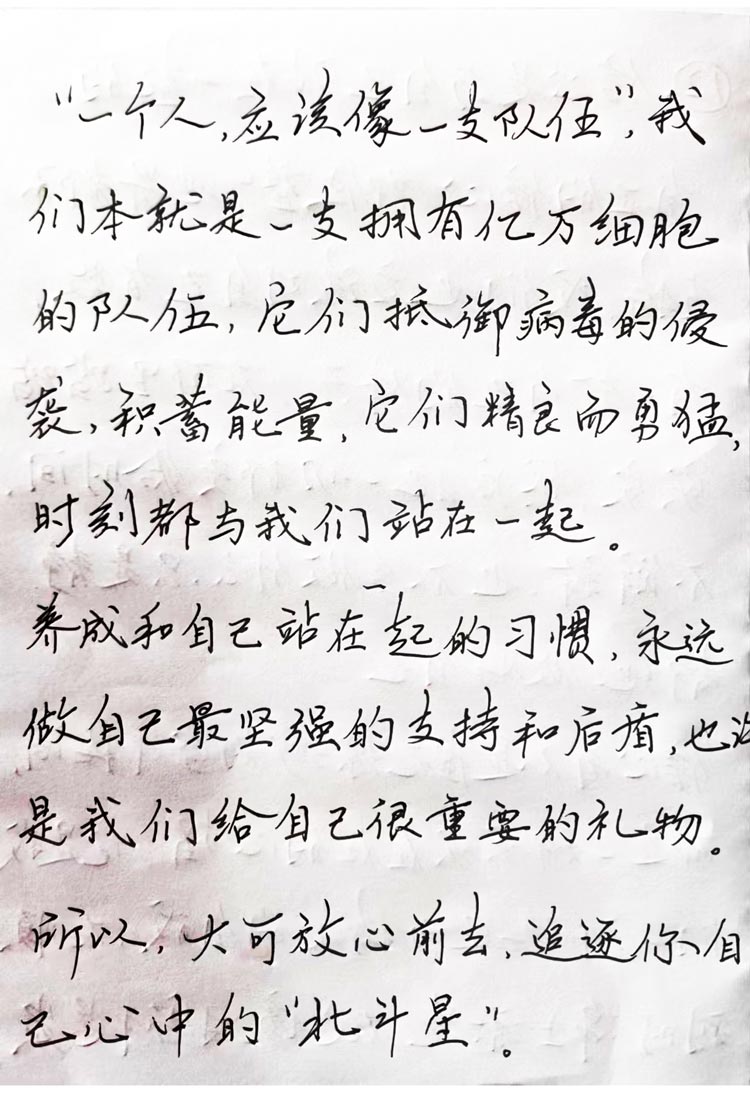 “一个人,应该像一支队伍”,我
们本就是一支拥有亿万细胞
的队伍,它们抵御病毒的侵
袭,积蓄能量,它们精良而勇猛,
时刻都与我们站在一起。
养成和自己站在一起的习惯,永远
做自己最坚强的支持和后盾,也
是我们给自己很重要的礼物。
所以,大可放心前去,追逐你自
己心中的“北斗星”。